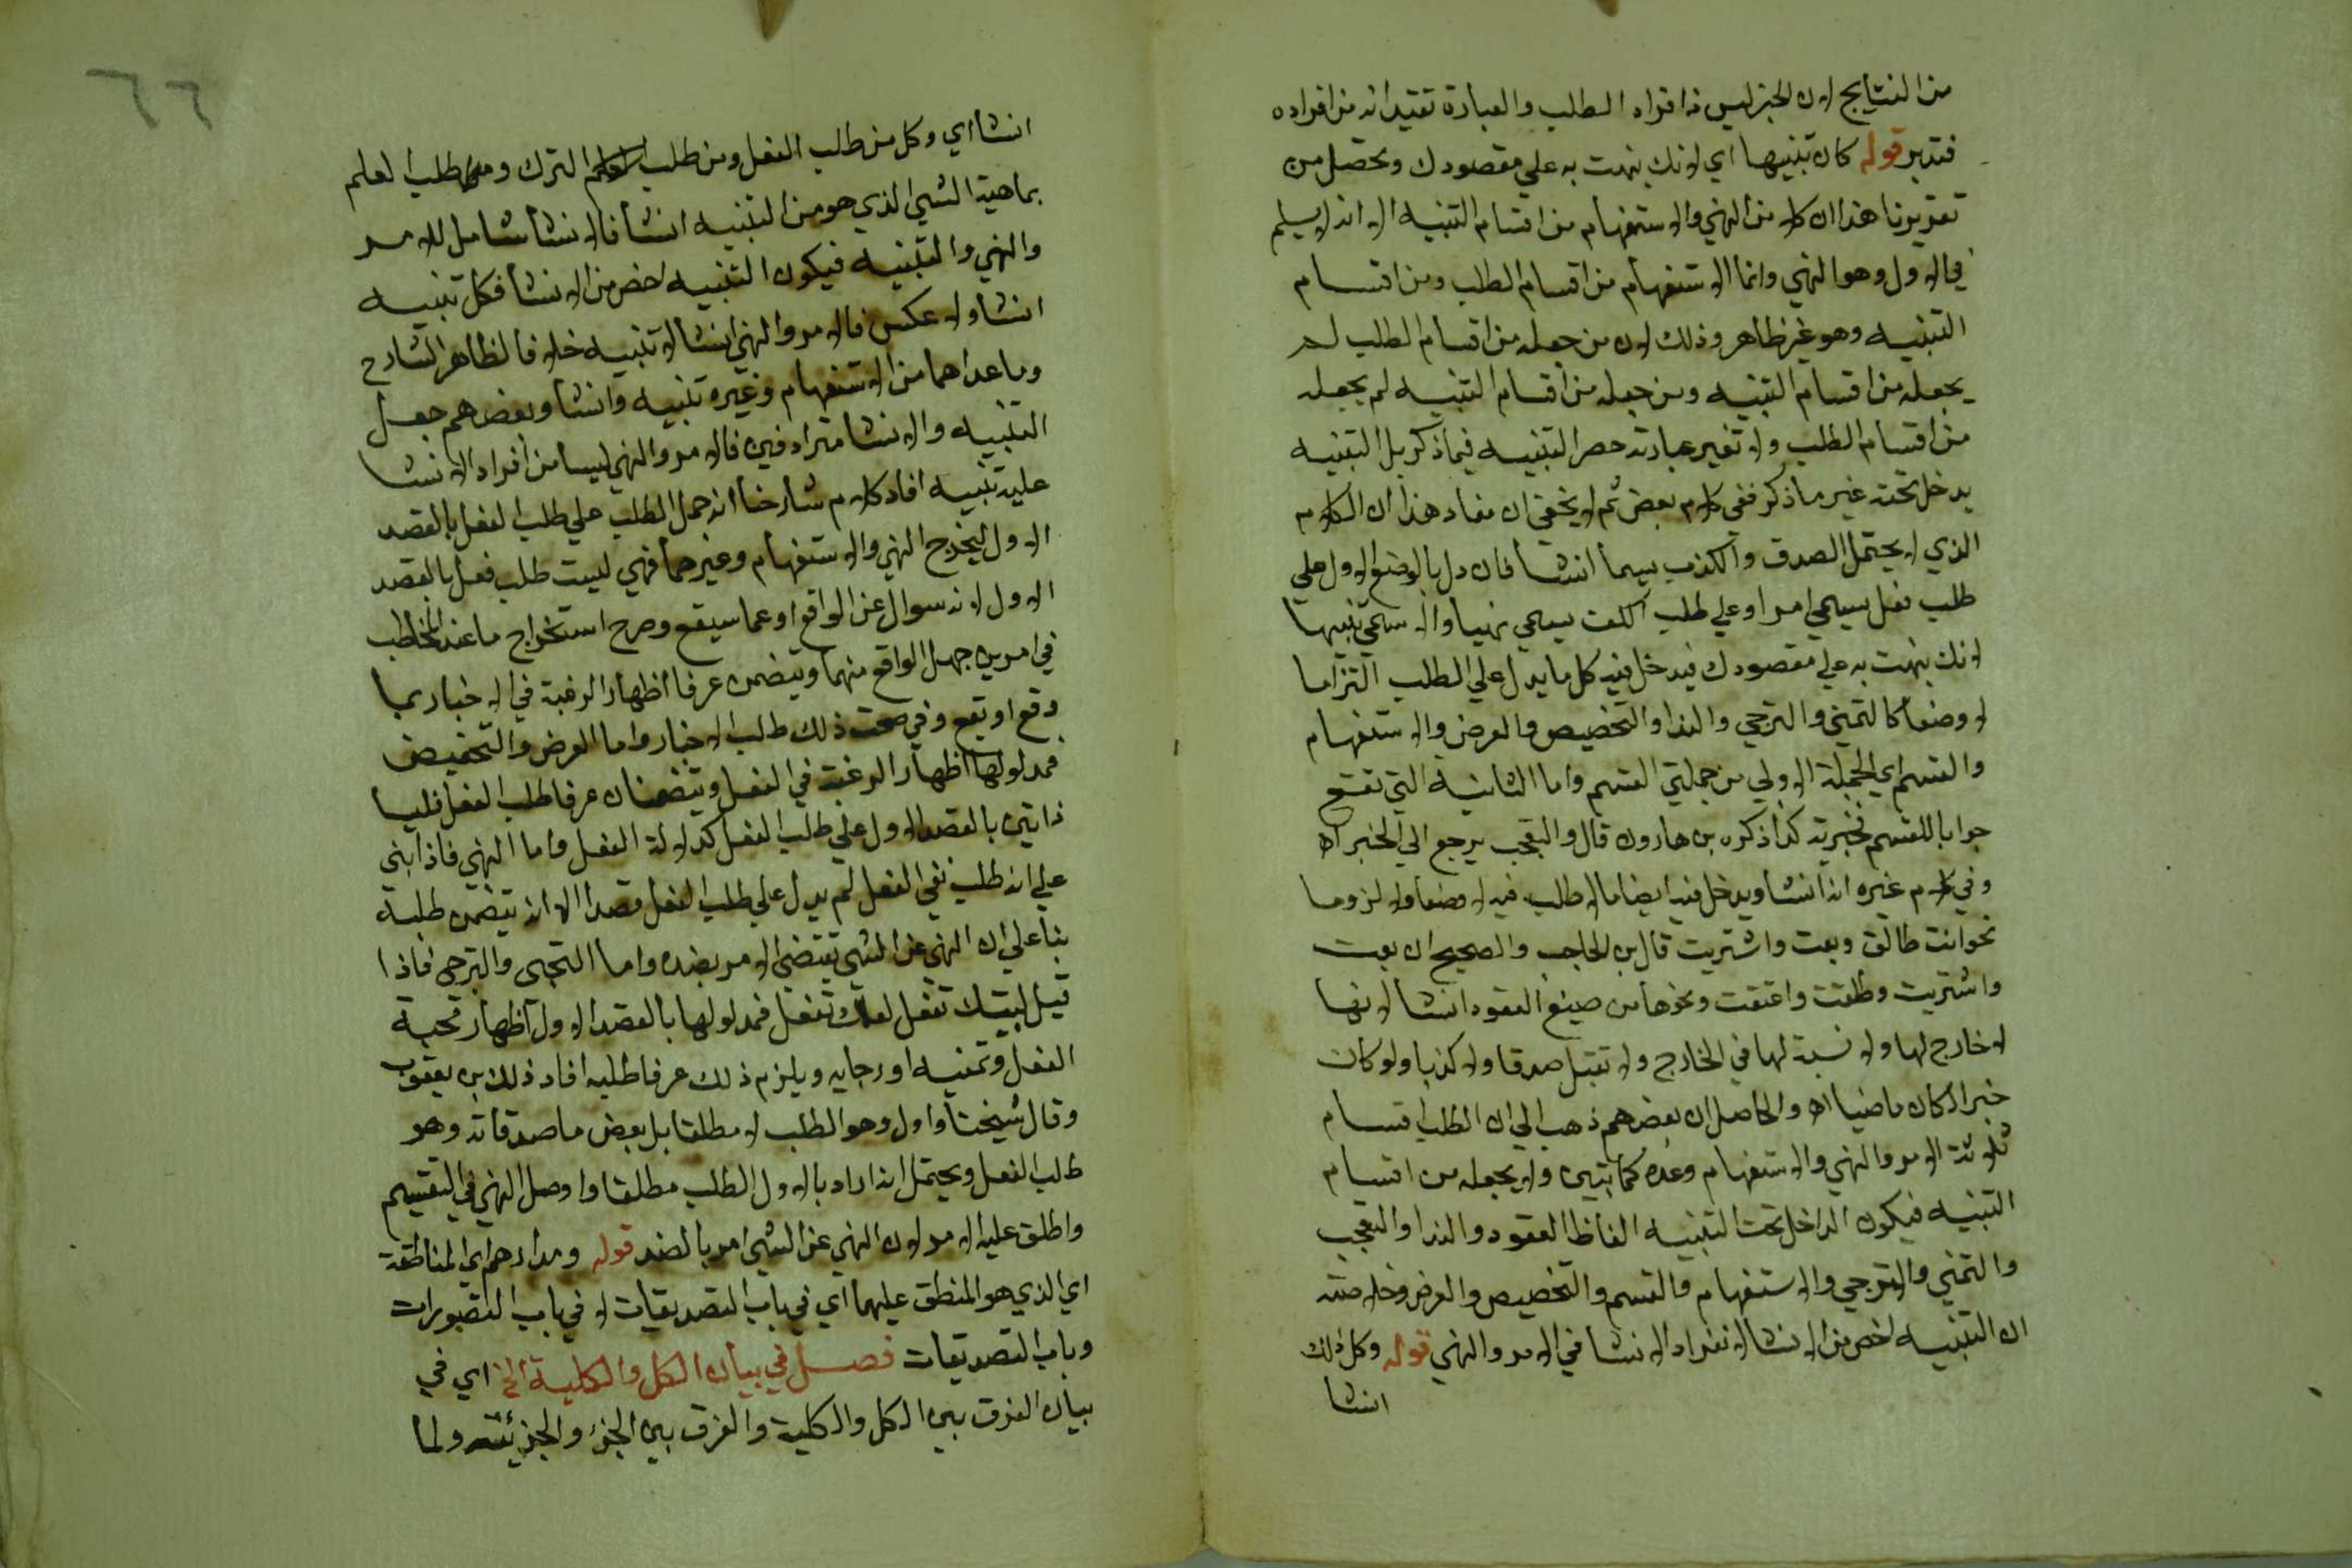 من النتايج لان الخبر ليس من افراد الطلب والعبارة تقتيد انه من افراده
فتدبر قوله كان تنبيها اي لانك نبهت به علي مقصودك وتحصل من
تقريرنا هذا ان كلا من النهي والاستفهام من اقسام التنبيه الا انه لا يسلم
في الاول وهو النهي وانما الاستفهام من اقسام الطلب ومن اقسام
التنبيه وهو غير ظاهر وذلك لان من جعله من اقسام الطلب لم
يجعله من اقسام التنبيه ومن جعله من اقسام التنبيه لم يجعله
من اقسام الطلب ولا تفيد عبارته حصر التنبيه فيما ذكر بل التنبيه
يدخل تحته غير ما ذكر ففي كلام بعض ثم لا يخفي ان مفاد هذا ان الكلام
الذي لا يحتمل الصدق والكذب يسما انشا فان دل بالوضع الاول علي
طلب فعل يسمي امرا وعلي طلب الكف يسمي نهيا والا سمي تنبيها
لانك نبهت به علي مقصودك فيدخل فيه كل ما يدل علي الطلب التزاما
لا وضعا كالتمني والترجي والندا والتخصيص والعرض والاستفهام
والقسم اي الجملة الاولي من جملتي القسم واما الثانية التي تقع
جوابا للقسم فخبرية كذا ذكره بن هارون قال والتعجب يرجع الي الخبر اه
وفي كلام غيره انه انشا ويدخل فيه ايضا ما لا طلب فيه لا وضعا ولا لزوما
نحو انت طالق وبعت واشتريت قال بن الحاجب والصحيح ان بعت
واشتريت وطلقت واعتقت ونحوها من صيغ العقود انشا لانها
لا خارج لها ولا نسبة لها في الخارج ولا تقبل صدقا ولا كذبا ولو كان
خبرا لكان ماضيا اه والحاصل ان بعضهم ذهب الي ان الطلب اقسام
ثلاثة الامر والنهي والاستفهام وعده كما بتين ولا يجعله من اقسام
التنبيه فيكون الداخل تحت التنبيه الفاظ العقود والندا والتعجب
والتمني والترجي والاستفهام والقسم والتخصيص والعرض وخلاصته
ان التنبيه اخص من الانشا لانفراد الانشا في الامر والنهي قوله وكل ذلك
انشا
٦٦
انشا اي وكل من طلب الفعل ومن طلب الترك ومن طلب العلم
بماهية الشي الذي هو من التنبيه انشا فالانشا شامل للامر
والنهي والتنبيه فيكون التنبيه اخص من الانشا فكل تنبيه
انشا ولا عكس فالامر والنهي انشا لا تنبيه خلافا لظاهر الشارح
وما عداهما من الاستفهام وغيره تنبيه وانشا وبعضهم جعل
التنبيه والانشا مترادفين فالامر والنهي ليسا من افراد الانشا
عليه تنبيه افاد كلام شارحنا انه حمل الطلب علي طلب الفعل بالقصد
الاول ليخرج النهي والاستفهام وغيرهما فهي ليست طلب فعل بالقصد
الاول لانه سوال عن الواقع او عما سيقع وصرح استخراج ما عند المخاطب
في امرين جهل الواقع منهما ويتضمن عرفا اظهار الرغبة في الاخبار بما
وقع او يقع وفي صحت ذلك طلب الاخبار واما العرض والتحضيض
فمدلولها اظهار الرغبة في الفعل ويتضمنان عرفا طلب الفعل فليسا
ذاتين بالقصد الاول علي طلب الفعل كدلالة الفعل واما النهي فاذا بني
علي انه طلب نفي الفعل لم يدل علي طلب الفعل قصدا الا انه يتضمن طلبه
بنا علي ان النهي عن الشي يقتضي الامر بضده واما التجي والترجي فاذا
قيل ليتك تفعل لعلك تفعل فمدلولها بالقصد الاول اظهار محبة
الفعل وتمنيه او رجايه ويلزم ذلك عرفا طلبه افاد ذلك بن يعقوب
وقال شيخنا واول وهو الطلب لا مطلقا بل بعض ما صدقاته وهو
طلب الفعل ويحتمل انه اراد بالاول الطلب مطلقا وادخل النهي في التقسيم
واطلق عليه الامر لان النهي عن الشي امر بالضد قوله ومدارهم اي المناطقة
اي الذي هو المنطق عليهما اي في باب التصديقات لا في باب التصورات
وباب التصديقات فصل في بيان الكل والكلية الخ اي في
بيان الفرق بين الكل والكلية والفرق بين الجزء والجزئية ولما